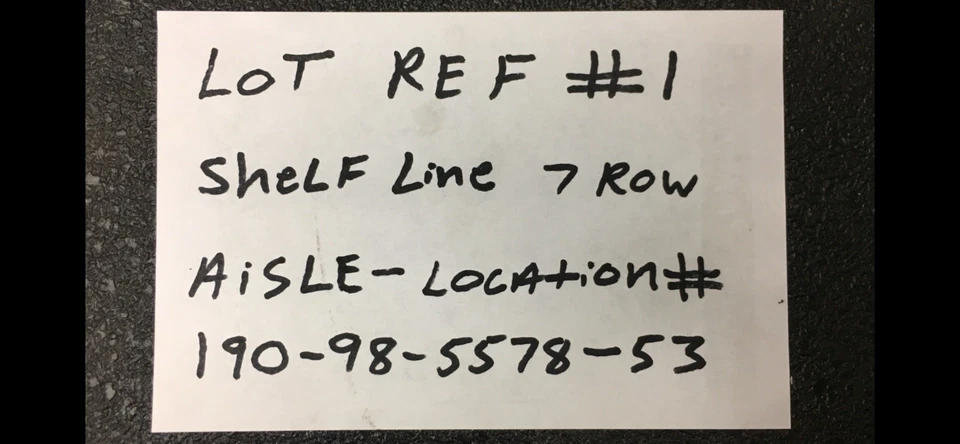 LOT REF #1
SheLF Line 7 Row
AiSLE-LOCAtion#
190-98-5578-53